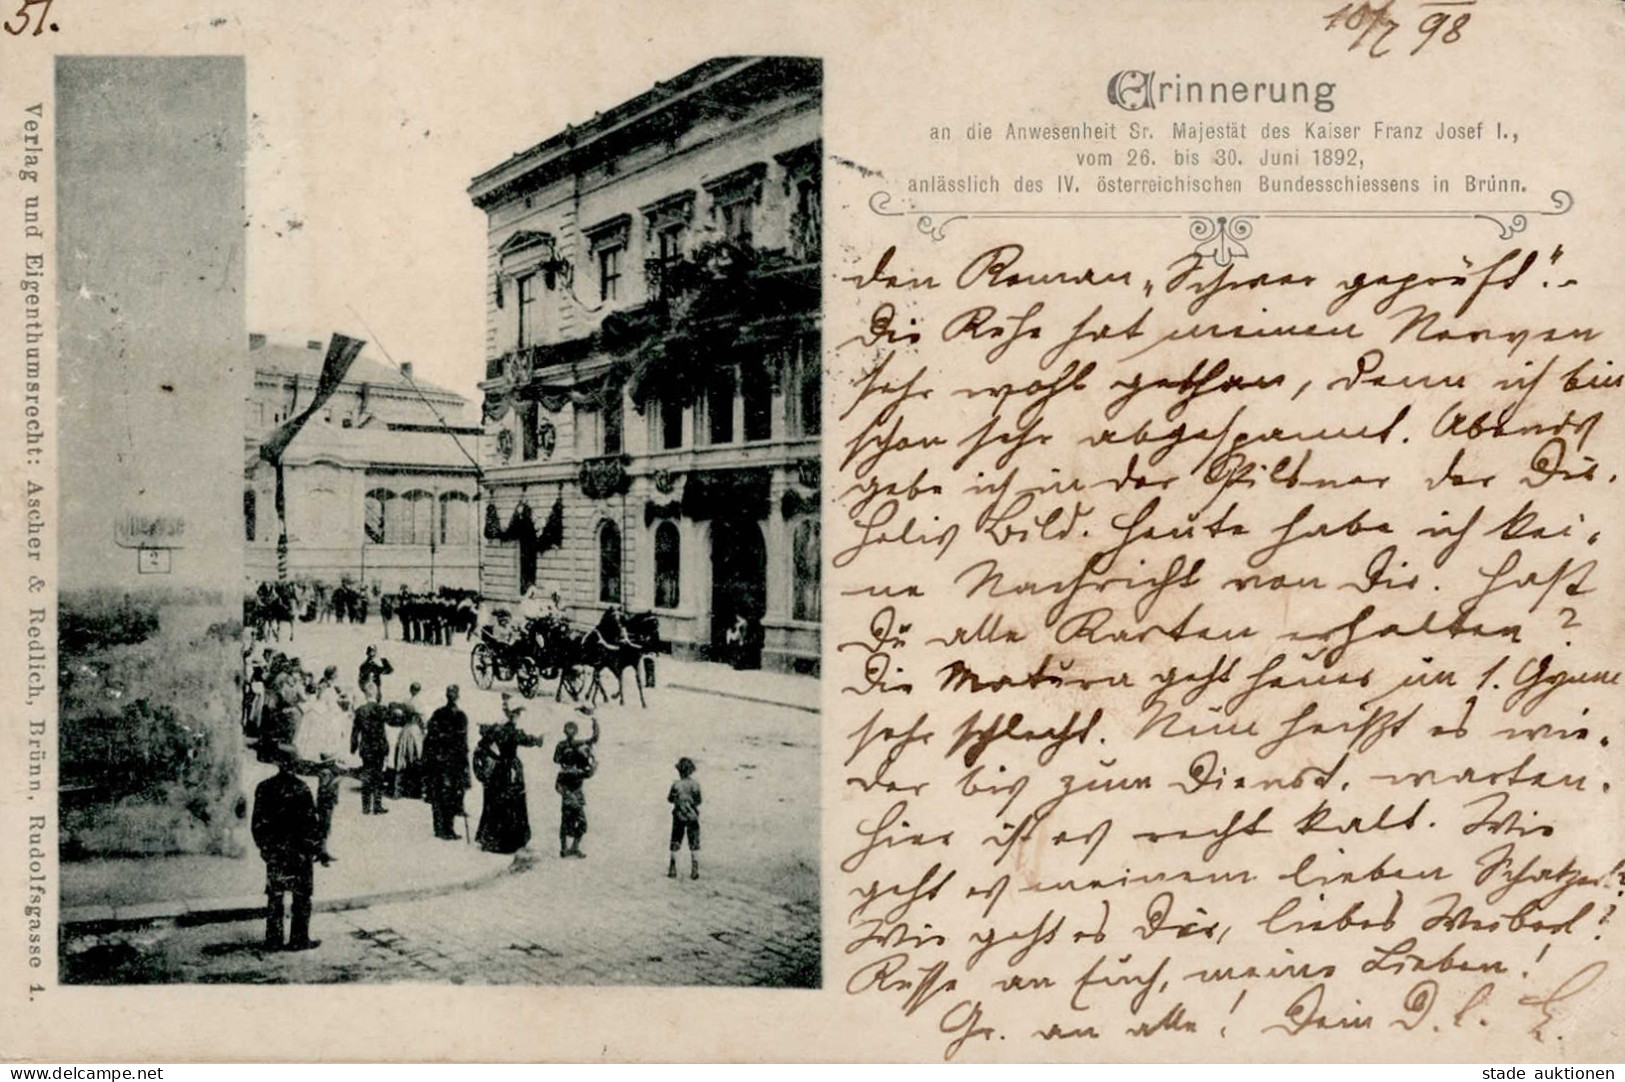 51.
10/7 98
Erinnerung
an die Anwesenheit Sr. Majestät des Kaiser Franz Josef I.,
vom 26. bis 30. Juni 1892,
anlässlich des IV. österreichischen Bundesschiessens in Brünn.
den Roman „Schwer geprüft“.-
Die Ruhe hat meinen Nerven
sehr wohl gethan, denn ich bin
schon sehr abgespannt. Abends
gebe ich in der Pilsner der
Bild. Heute habe ich kei-
ne Nachricht von Dir. Hast
Du alle Karten erhalten?
Die Matura geht heuer im 1. Gymn
sehr schlecht. Nun heißt es wie-
der bis zum Dienst. warten.
Hier ist es recht kalt. Wie
geht es meinem lieben Schatzerl?
Wie geht es Dir, liebes Weiberl?
Küsse an Euch, meine Lieben!
Gr. an alle! Dein D. l.
Verlag und Eigenthumsrecht: Ascher & Redlich, Brünn, Rudolfsgasse 1.
www.delcampe.net
stade auktionen